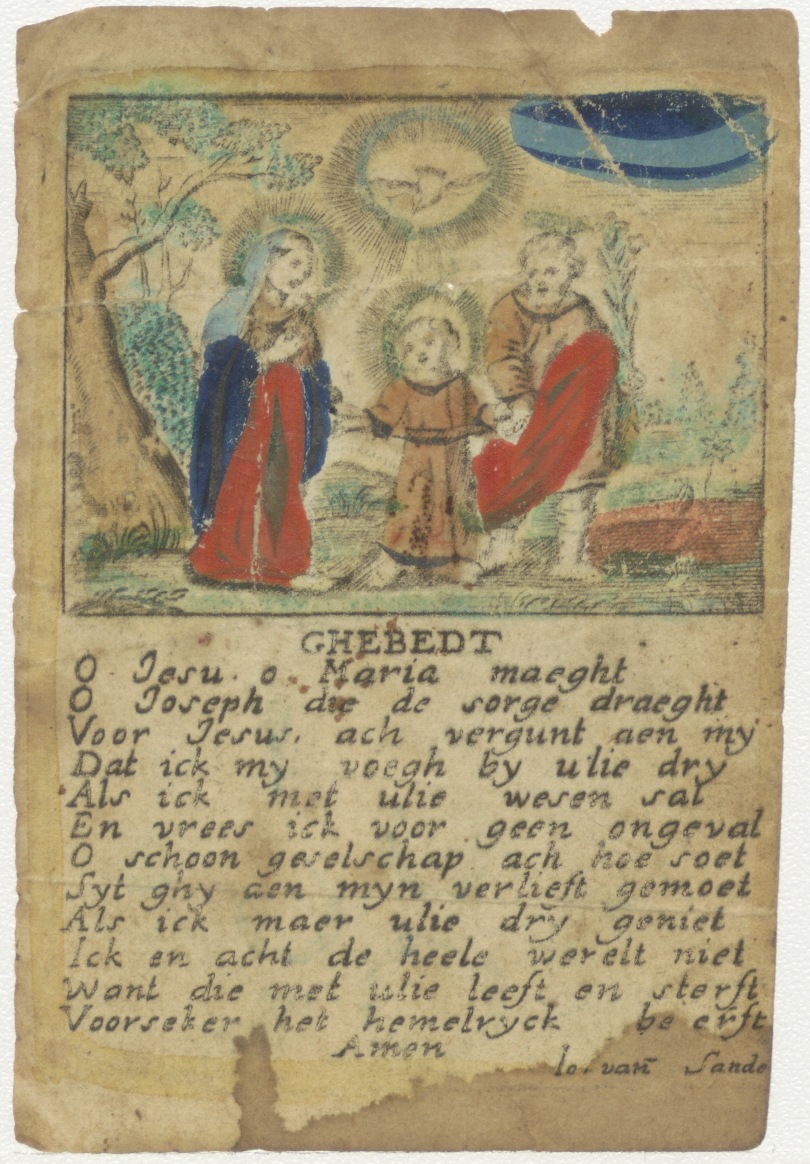 GHEBEDT
O Iesu. o Maria maeght
O Ioseph die de sorge draeght
Voor Iesus. ach vergunt aen my
Dat ick my voegh by ulie dry
Als ick met ulie wesen sal
En vrees ick voor geen ongeval
O schoon geselschap ach hoe soet
Syt ghy aen myn verlieft gemoet
Als ick maer ulie dry geniet
Ick en acht de heele werelt niet
Want die met ulie leeft en sterft
Voorseker het hemelryck be erft
Amen
Io. van Sande